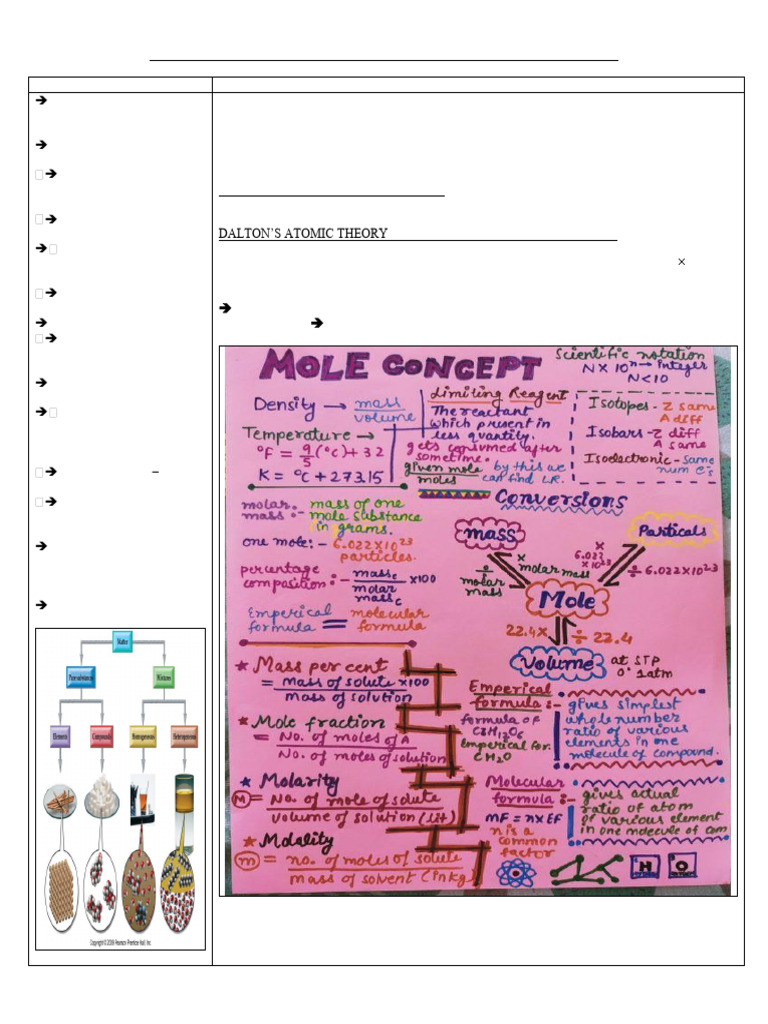 DALTON’S ATOMIC THEORY
×
–
MOLE CONCEPT
Scientific notation
N × 10ⁿ → integer
N < 10
Density → mass
volume
Temperature →
°F = 9/5 (°C) + 32
K = °C + 273.15
Limiting Reagent
The reactant
which present in
less quantity.
gets consumed after
sometime.
given mole
moles
by this we
can find L.R.
Isotopes - Z same
A diff
Isobars - Z diff
A same
Isoelectronic - same
num e⁻s
molar
mass :- mass of one
mole substance
in grams.
one mole :- 6.022×10²³
particles.
percentage
composition :- mass_c ×100
molar
mass_c
Emperical
formula = molecular
formula
Conversions
mass
Particals
÷
molar
mass
×
molar mass
×
6.022
×10²³
÷ 6.022×10²³
Mole
22.4×
÷ 22.4
Volume at STP
0° 1atm
★ Mass per cent
= Mass of solute ×100
Mass of solution
★ Mole fraction
= No. of moles of A
No. of moles of solution
★ Molarity
M = No. of mole of solute
volume of solution (lit)
★ Molality
m = no. of moles of solute
mass of solvent (in kg)
Emperical
formula :-
formula of
C6H12O6
emperical for.
CH2O
gives simplest
whole number
ratio of various
elements in one
molecule of compound.
Molecular
formula :-
MF = n×EF
n is a
common
factor
gives actual
ratio of atom
of various element
in one molecule of com
H
O
Matter
Pure substances
Mixtures
Elements
Compounds
Homogeneous
Heterogeneous
Copyright © 2008 Pearson Prentice Hall, Inc.